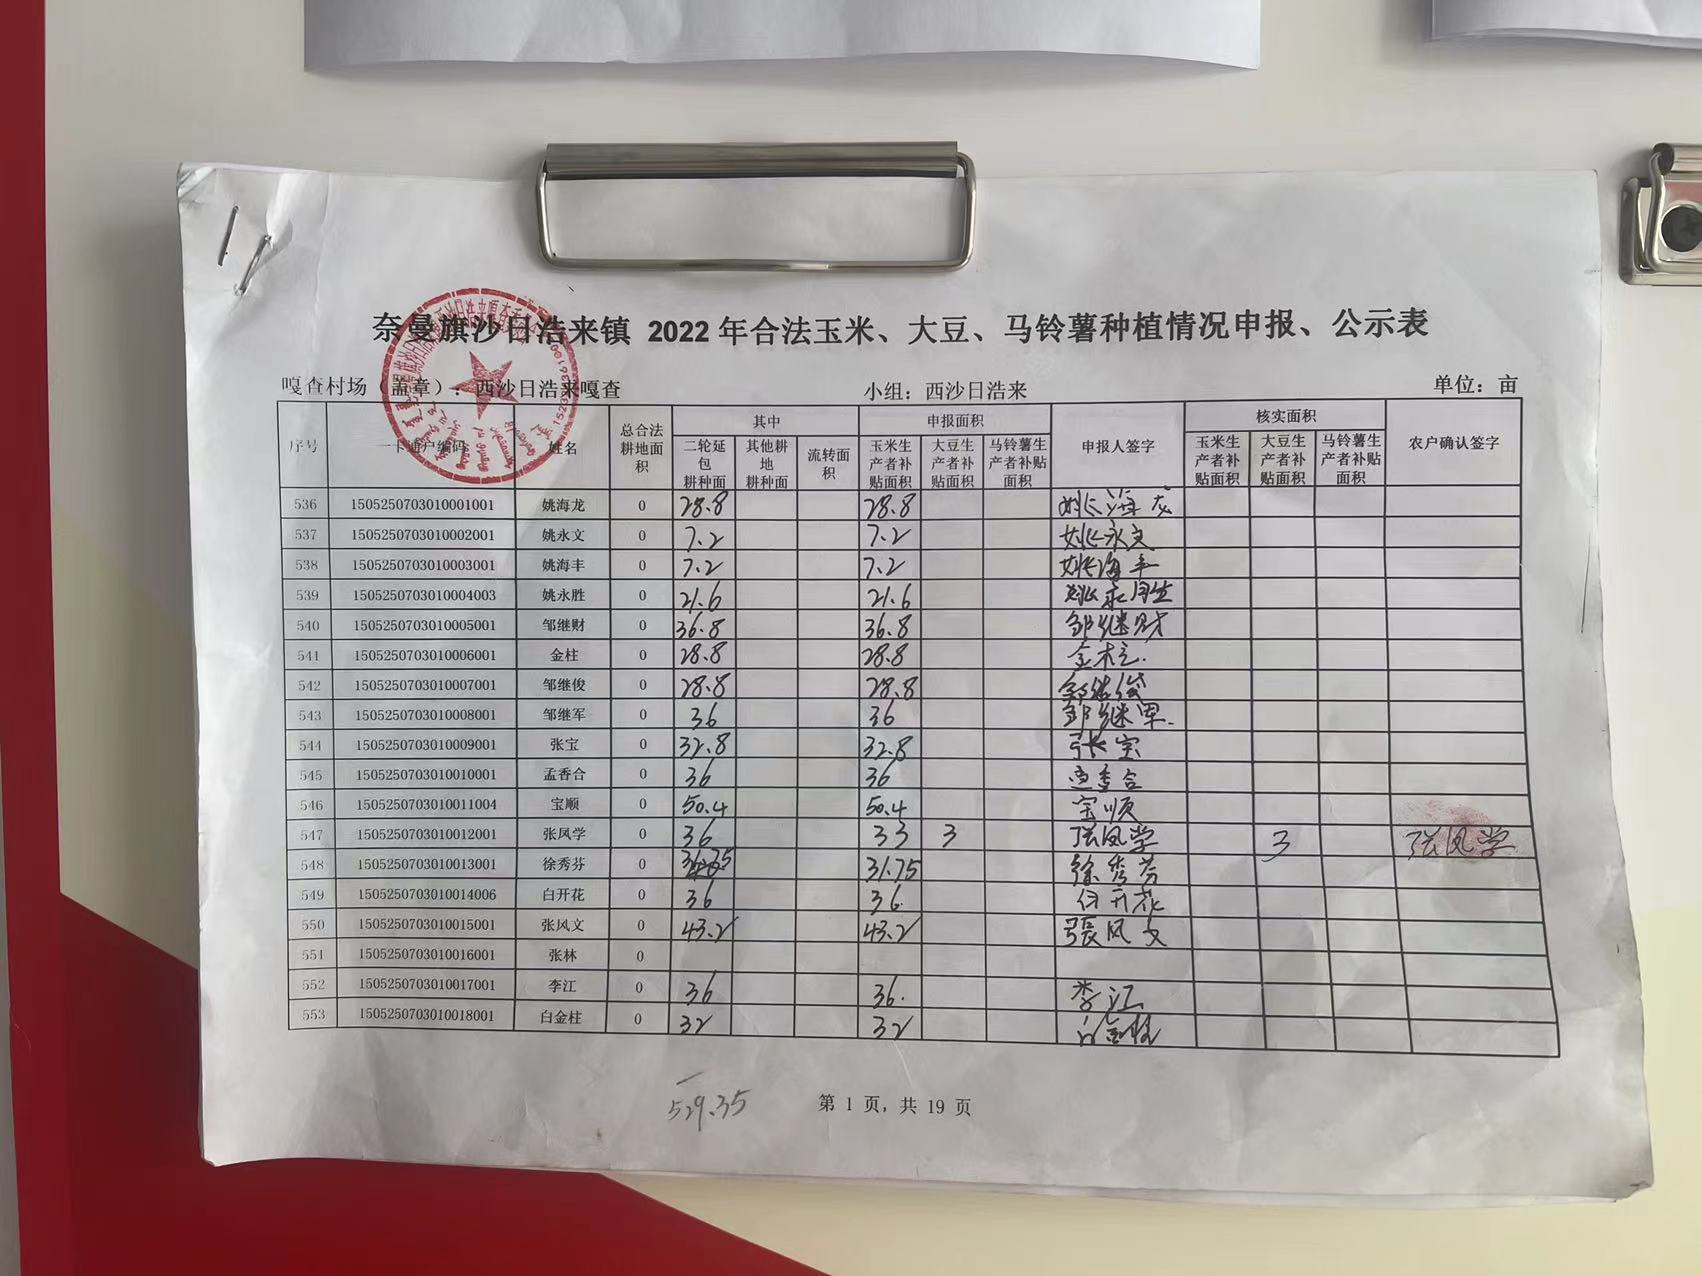 奈曼旗沙日浩来镇 2022 年合法玉米、大豆、马铃薯种植情况申报、公示表
嘎查村场（盖章）：西沙日浩来嘎查 小组：西沙日浩来 单位：亩
序号 一卡通户编码 姓名 总合法耕地面积 其中 申报面积 申报人签字 核实面积 农户确认签字
二轮延包耕种面 其他耕地耕种面 流转面积 玉米生产者补贴面积 大豆生产者补贴面积 马铃薯生产者补贴面积 玉米生产者补贴面积 大豆生产者补贴面积 马铃薯生产者补贴面积
536 1505250703010001001 姚海龙 0 28.8 28.8 姚海龙
537 1505250703010002001 姚永文 0 7.2 7.2 姚永文
538 1505250703010003001 姚海丰 0 7.2 7.2 姚海丰
539 1505250703010004003 姚永胜 0 21.6 21.6 姚永胜
540 1505250703010005001 邹继财 0 36.8 36.8 邹继财
541 1505250703010006001 金柱 0 28.8 28.8 金柱
542 1505250703010007001 邹继俊 0 28.8 28.8 邹继俊
543 1505250703010008001 邹继军 0 36 36 邹继军
544 1505250703010009001 张宝 0 32.8 32.8 张宝
545 1505250703010010001 孟香合 0 36 36 孟香合
546 1505250703010011004 宝顺 0 50.4 50.4 宝顺
547 1505250703010012001 张凤学 0 36 33 3 张凤学 3 张凤学
548 1505250703010013001 徐秀芬 0 31.75 徐秀芬
549 1505250703010014006 白开花 0 36 36 白开花
550 1505250703010015001 张凤文 0 43.2 43.2 張凤文
551 1505250703010016001 张林 0
552 1505250703010017001 李江 0 36 36 李江
553 1505250703010018001 白金柱 0 32 32 白金柱
529.35 第 1 页，共 19 页